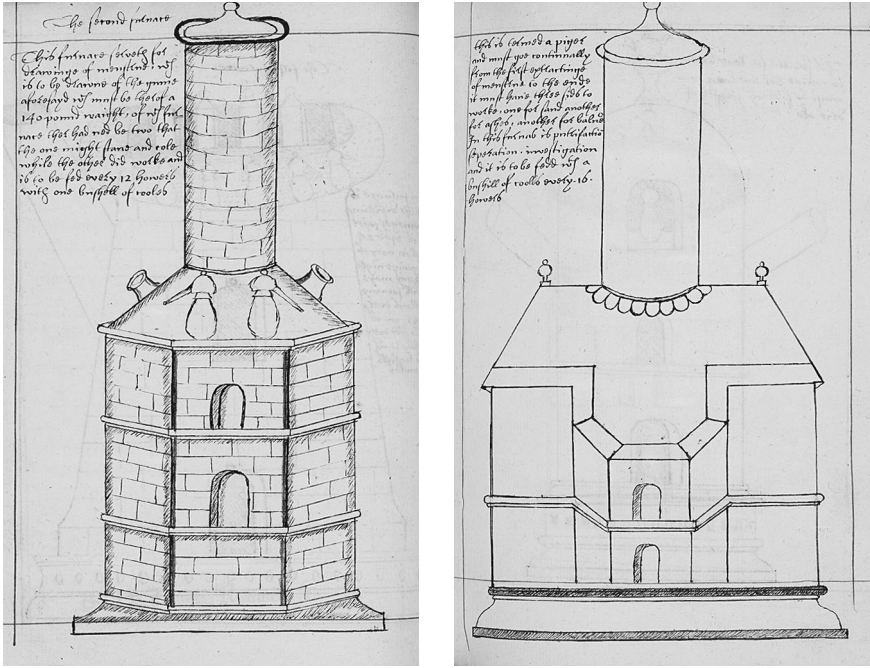 The second furnace
This furnace serveth for
drawinge of menstrue wch
is to be drawne of the gume
aforesayd wch must be therof a
140 pound waight, of wch fur
nace ther had ned be two that
the one might stand and cole
while the other did worke and
is to be fed every 12 howers
with one bushell of cooles
this is termed a piger
and must goe continually
from the first extractinge
of menstrue to the ende
it must have three sids to
worke, one for sand another
for ashes, another for balne
In this furnas is putrifactio
seperation. investigation
and it is to be fedd wth a
bushell of cooles every .16.
howers